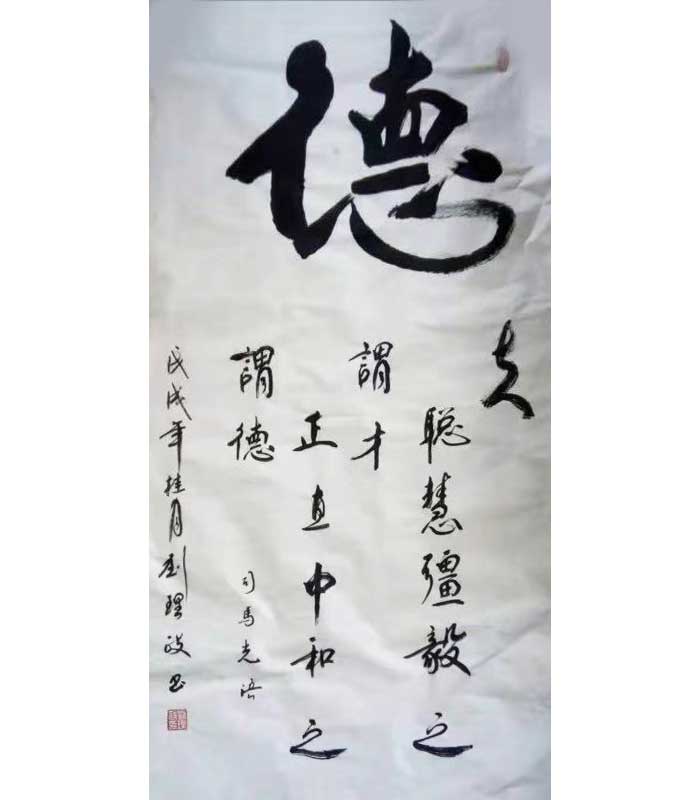 德
夫
聪慧彊毅之
謂才
正直中和之
謂德
司馬光语
戊戌年桂月刘理政书